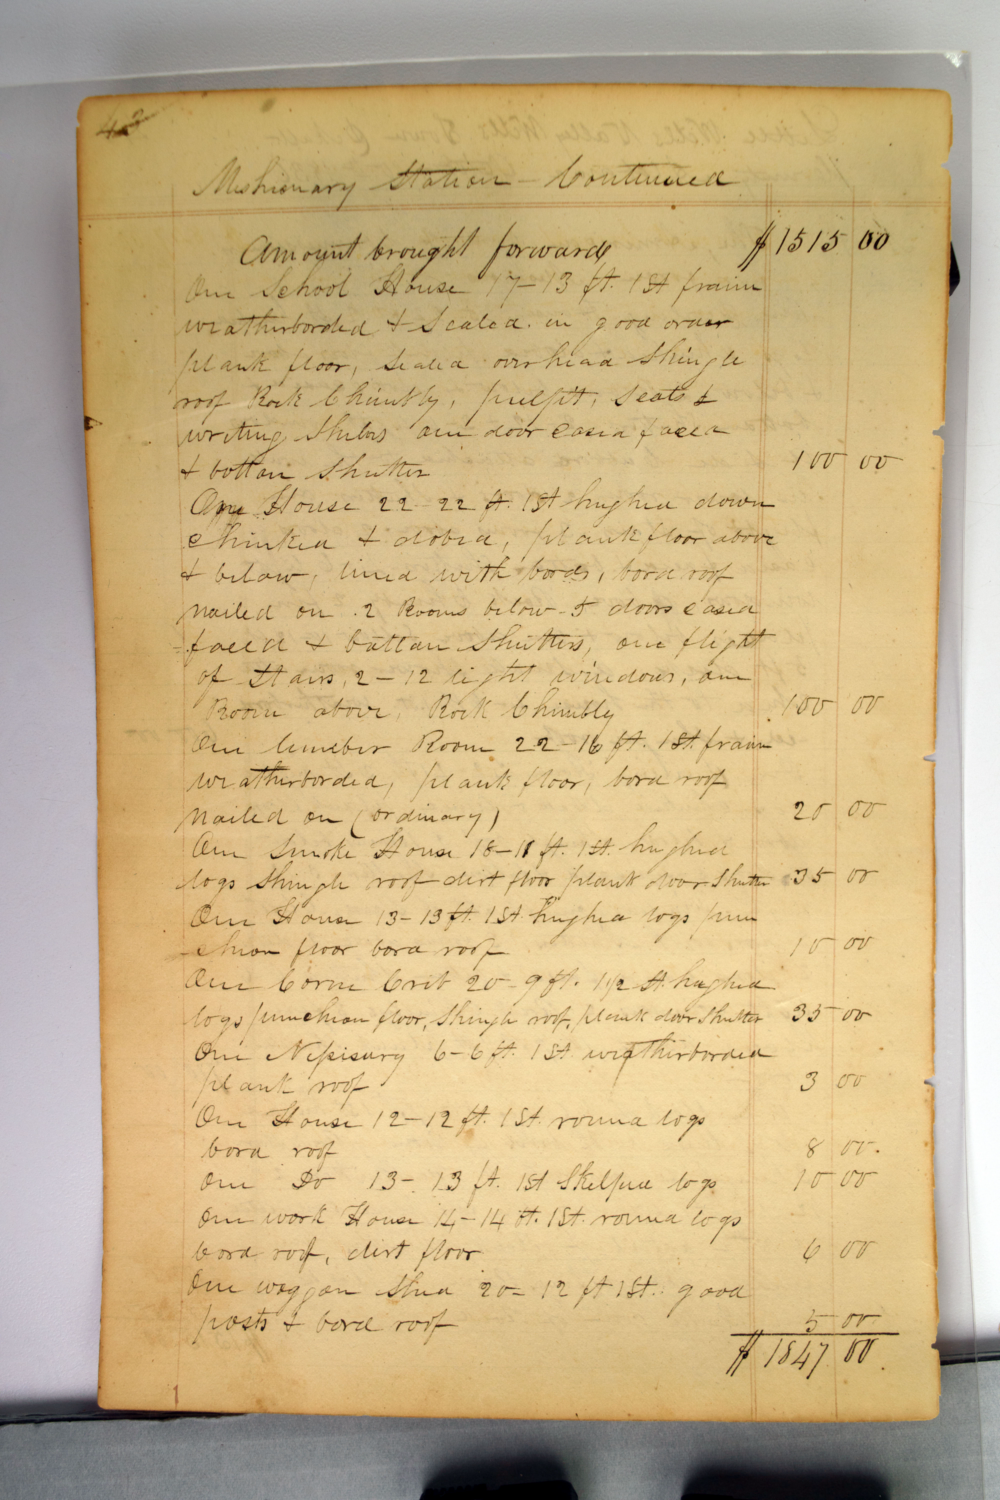 42
Mishionary Station - Continued
Amount brought forwards $1515 00
One School House 17-13 ft. 1 St fraim
weatherborded & Sealed. in good order
plank floor, Sealed overhead Shingle
roof Rock Chimbly, pulpit, Seats &
writing Shilvs one door cased faced
& battan Shutter 100 00
One House 22-22 ft. 1 St hughed down
Chinked & dobed, plank floor above
& below, lined with bords, bord roof
nailed on. 2 Rooms below - 5 doors cased
faced & battan Shutters, one flight
of Stairs, 2-12 light windows, one
Room above, Rock Chimbly 100 00
One lumber Room 22-16 ft. 1 St. fraim
weatherborded, plank floor, bord roof
nailed on (ordinary) 20 00
One Smoke House 18-18 ft. 1 St. hughed
logs Shingle roof dirt floor plank door Shutter 35 00
One House 13-13 ft 1 St. hughed logs pun
cheon floor bord roof 10 00
One Corne Crib 20-9 ft. 1 1/2 St hughed
logs puncheon floor, Shingle roof, plank door Shutter 35 00
One Nessisary 6-6 ft. 1 St weatherborded
plank roof 3 00
One House 12-12 ft. 1 St. round logs
bord roof 8 00.
One Do 13-13 ft. 1 St Skelped logs 10 00
One work House 14-14 ft. 1 St. round logs
bord roof, dirt floor 6 00
One waggon Shed 20=12 ft 1 St. good
posts & bord roof 5 00
$ 1847 00